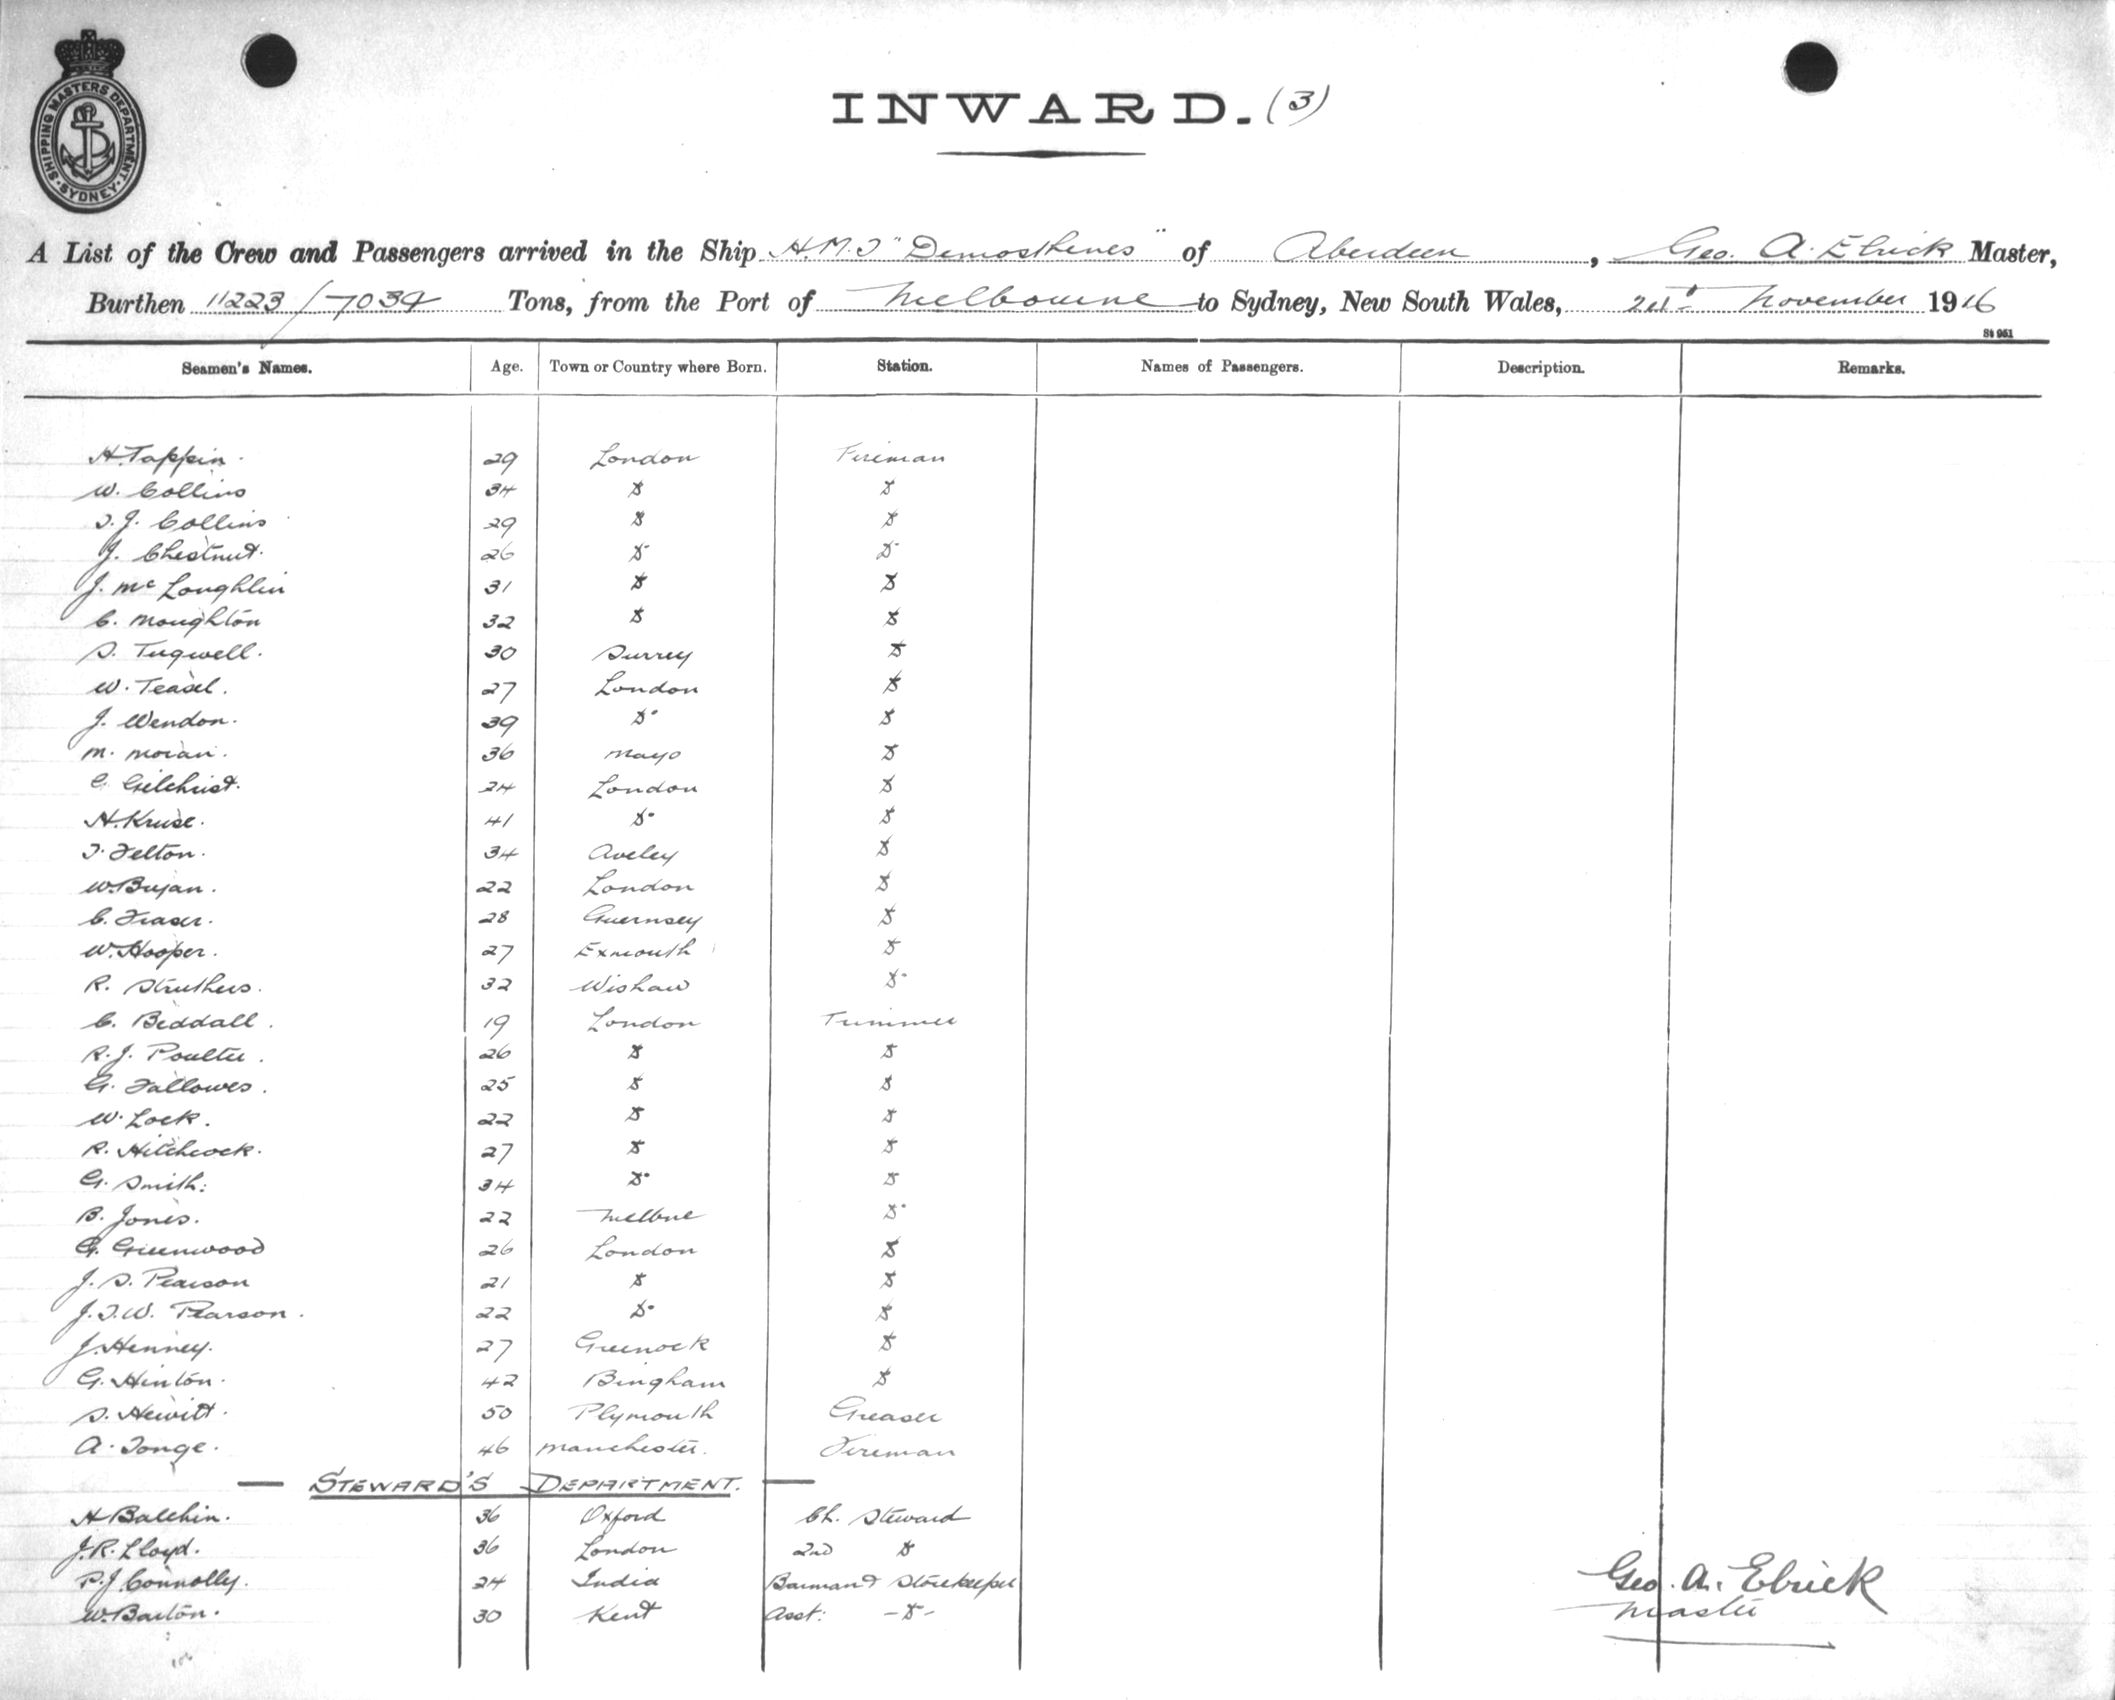 SHIPPING MASTERS DEPARTMENT
SYDNEY
INWARD. (3)
A List of the Crew and Passengers arrived in the Ship H.M.T "Demosthenes" of Aberdeen, Geo. A. Ebrick Master,
Burthen 11223/7034 Tons, from the Port of Melbourne to Sydney, New South Wales, November 1916
St 951
Seamen's Names. Age. Town or Country where Born. Station. Names of Passengers. Description. Remarks.
H. Tappin. 29 London Fireman
W. Collins 34 Do Do
T. J. Collins 29 Do Do
J. Chestnut. 26 Do Do
J. McLoughlin 31 Do Do
C. Moughton 32 Do Do
S. Tugwell. 30 Surrey Do
W. Teasel. 27 London Do
J. Wendon. 39 Do Do
M. Moran. 36 Mayo Do
C. Gilchrist. 24 London Do
H. Kruse. 41 Do Do
T. Felton. 34 Aveley Do
W. Bujan. 22 London Do
C. Fraser. 28 Guernsey Do
W. Hooper. 27 Exmouth Do
R. Struthers. 32 Wishaw Do
C. Beddall. 19 London Trimmer
R. J. Poulter. 26 Do Do
G. Fallowes. 25 Do Do
W. Lock. 22 Do Do
R. Hitchcock. 27 Do Do
G. Smith. 34 Do Do
B. Jones. 22 Melbne Do
G. Greenwood 26 London Do
J. S. Pearson 21 Do Do
J. T. W. Pearson. 22 Do Do
J. Henney. 27 Greenock Do
G. Hinton. 42 Bingham Do
S. Hewitt. 50 Plymouth Greaser
A. Tonge. 46 Manchester. Fireman
— STEWARD'S DEPARTMENT. —
H Balchin. 36 Oxford Ch. Steward
J. R. Lloyd. 36 London 2nd Do
P. J. Connolly. 24 India Barman & Storekeeper
W. Barton. 30 Kent Asst: - Do -
Geo. A. Ebrick
Master